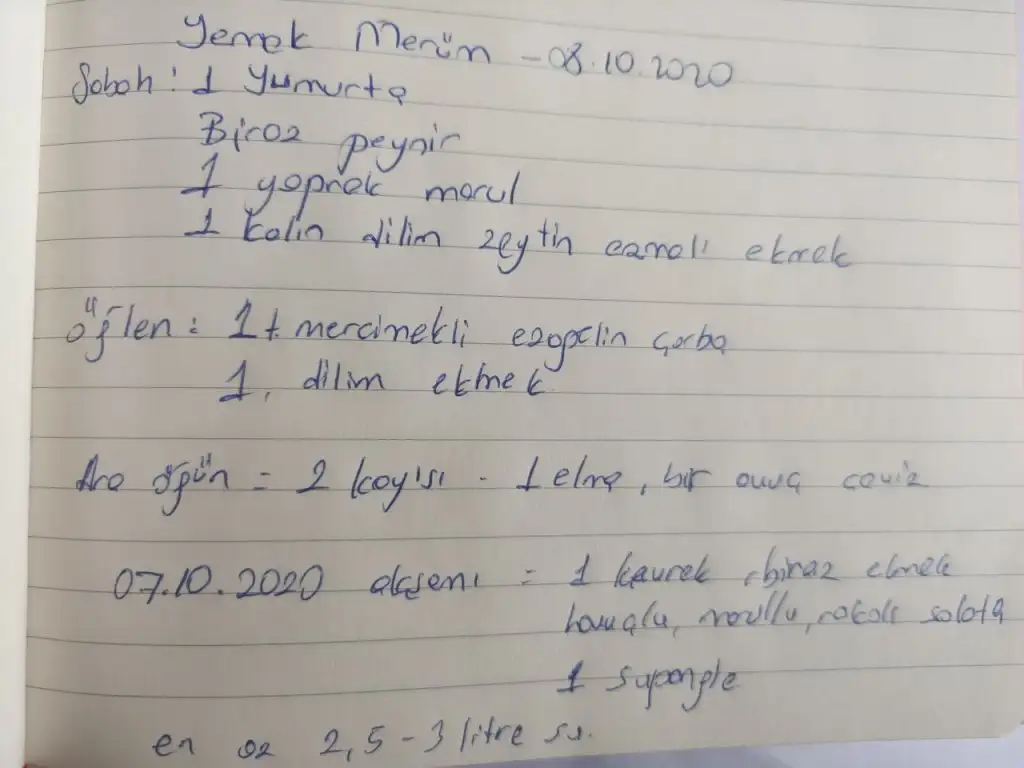 Yemek Menüm - 08.10.2020
Sabah: 1 Yumurta
Biraz peynir
1 yaprak marul
1 kalın dilim zeytin ezmeli ekmek
öğlen: 1 t mercimekli ezogelin çorba
1. dilim ekmek
Ara öğün = 2 kayısı - 1 elma, bir avuç ceviz
07.10.2020 akşamı = 1 , biraz ekmek
havuçlu, marullu, rokalı salata
1 supangle
en az 2,5-3 litre su.